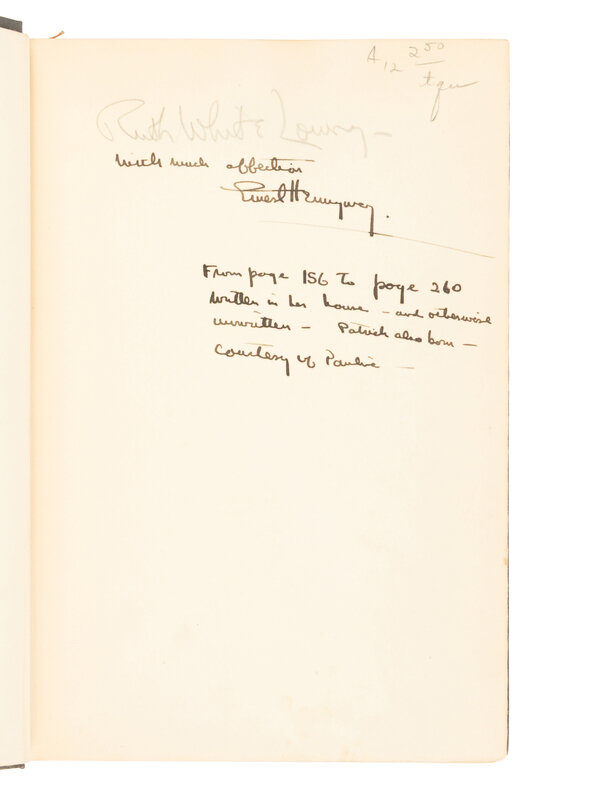 A12 2 50
Ruth White Lowry —
with much affection
Ernest Hemingway.
From page 156 to page 260
written in her house — and otherwise
unwritten — Patrick also born —
courtesy of Pauline —